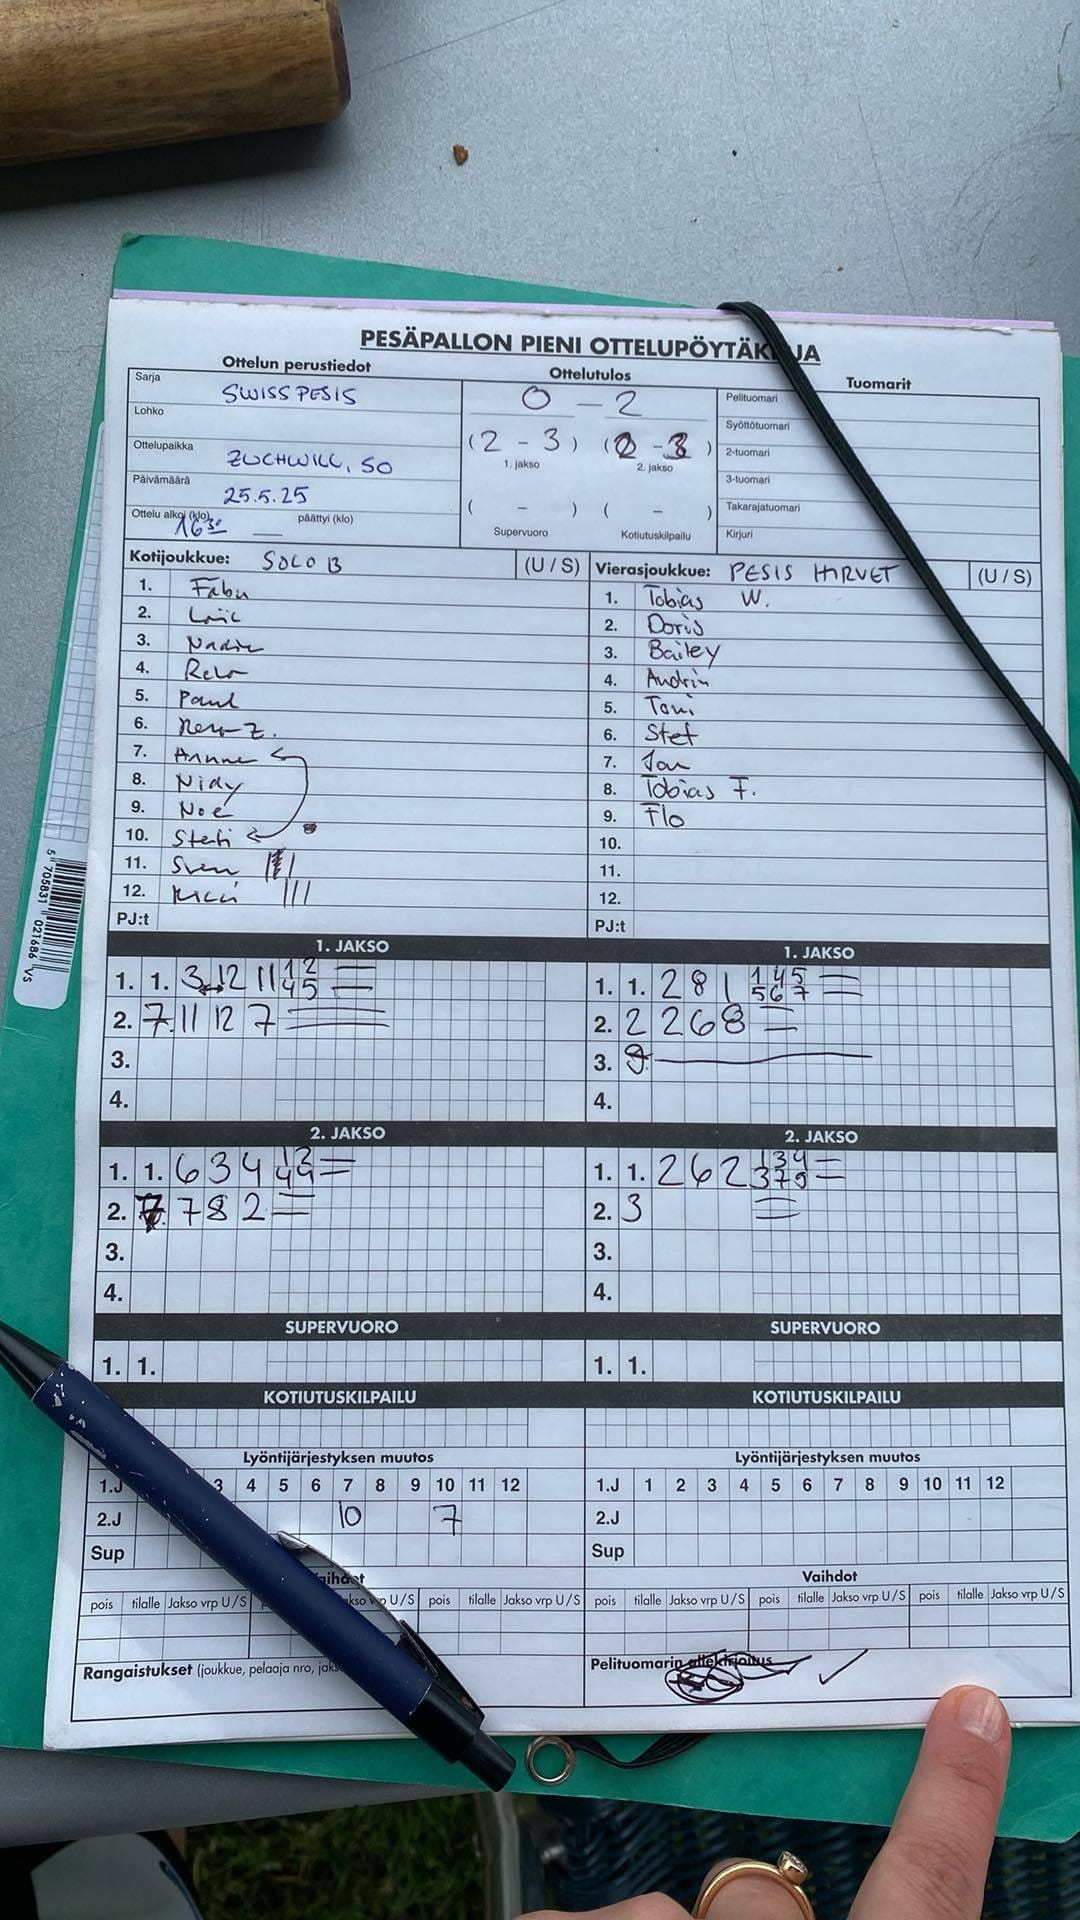 PESÄPALLON PIENI OTTELUPÖYTÄK JA
Ottelun perustiedot
Ottelutulos
Tuomarit
Sarja SWISS PESIS
Lohko
Ottelupaikka ZUCHWILL, SO
Päivämäärä 25.5.25
Ottelu alkoi (klo) 16 30 päättyi (klo)
0 – 2
(2 – 3) ( – )
1. jakso 2. jakso
( – ) ( – )
Supervuoro Kotiutuskilpailu
Pelituomari
Syöttötuomari
2-tuomari
3-tuomari
Takarajatuomari
Kirjuri
Kotijoukkue: SOLO B (U / S)
1. Fabu
2. Loïc
3. Nadin
4. Reto
5. Paul
6. Z.
7.
8. Nidy
9. Noé
10. Stefi
11. Sven
12.
PJ:t
Vierasjoukkue: PESIS HIRVET (U / S)
1. Tobias W.
2. Doris
3. Bailey
4. Andrin
5. Toni
6. Stef
7. Jan
8. Tobias F.
9. Flo
10.
11.
12.
PJ:t
1. JAKSO
1. 1. 3 12 11 1 2
4 5
2. 7. 11 12 7
3.
4.
1. JAKSO
1. 1. 2 8 1 1 4 5
5 6 7
2. 2 2 6 8
3. 9.
4.
2. JAKSO
1. 1. 6 3 4 1 2
4 4
2. 7 8 2
3.
4.
2. JAKSO
1. 1. 2 6 2 1 3 4
3 7 9
2. 3
3.
4.
SUPERVUORO
1. 1.
SUPERVUORO
1. 1.
KOTIUTUSKILPAILU
KOTIUTUSKILPAILU
Lyöntijärjestyksen muutos
1.J 3 4 5 6 7 8 9 10 11 12
2.J 10 7
Sup
Lyöntijärjestyksen muutos
1.J 1 2 3 4 5 6 7 8 9 10 11 12
2.J
Sup
aihdot
pois tilalle Jakso vrp U/S kso vrp U/S pois tilalle Jakso vrp U/S
Vaihdot
pois tilalle Jakso vrp U/S pois tilalle Jakso vrp U/S pois tilalle Jakso vrp U/S
Rangaistukset (joukkue, pelaaja nro, jaks
Pelituomarin allekirjoitus
5 705831 021686 VS